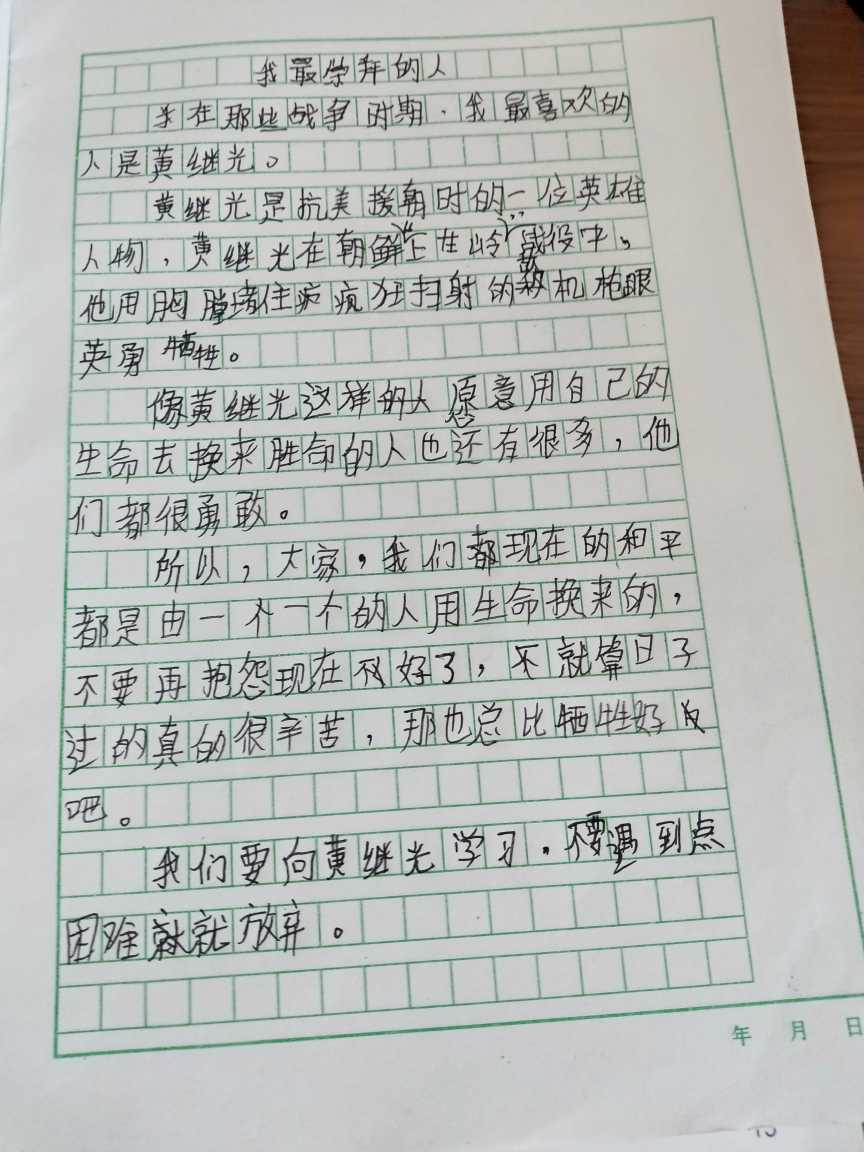 我最学拜的人
在那些战争时期，我最喜欢的
人是黄继光。
黄继光是抗美援朝时的一位英雄
人物，黄继光在朝鲜上甘岭战役中，
他用胸膛堵住疯狂扫射的敌机枪眼
英勇牺牲。
像黄继光这样的人愿意用自己的
生命去换来胜命的人也还有很多，他
们都很勇敢。
所以，大家，我们都现在的和平
都是由一个一个的人用生命换来的，
不要再抱怨现在不好了，不就算日子
过的真的很辛苦，那也总比牺牲好
吧。
我们要向黄继光学习。不要遇到点
困难就就放弃。
年 月 日